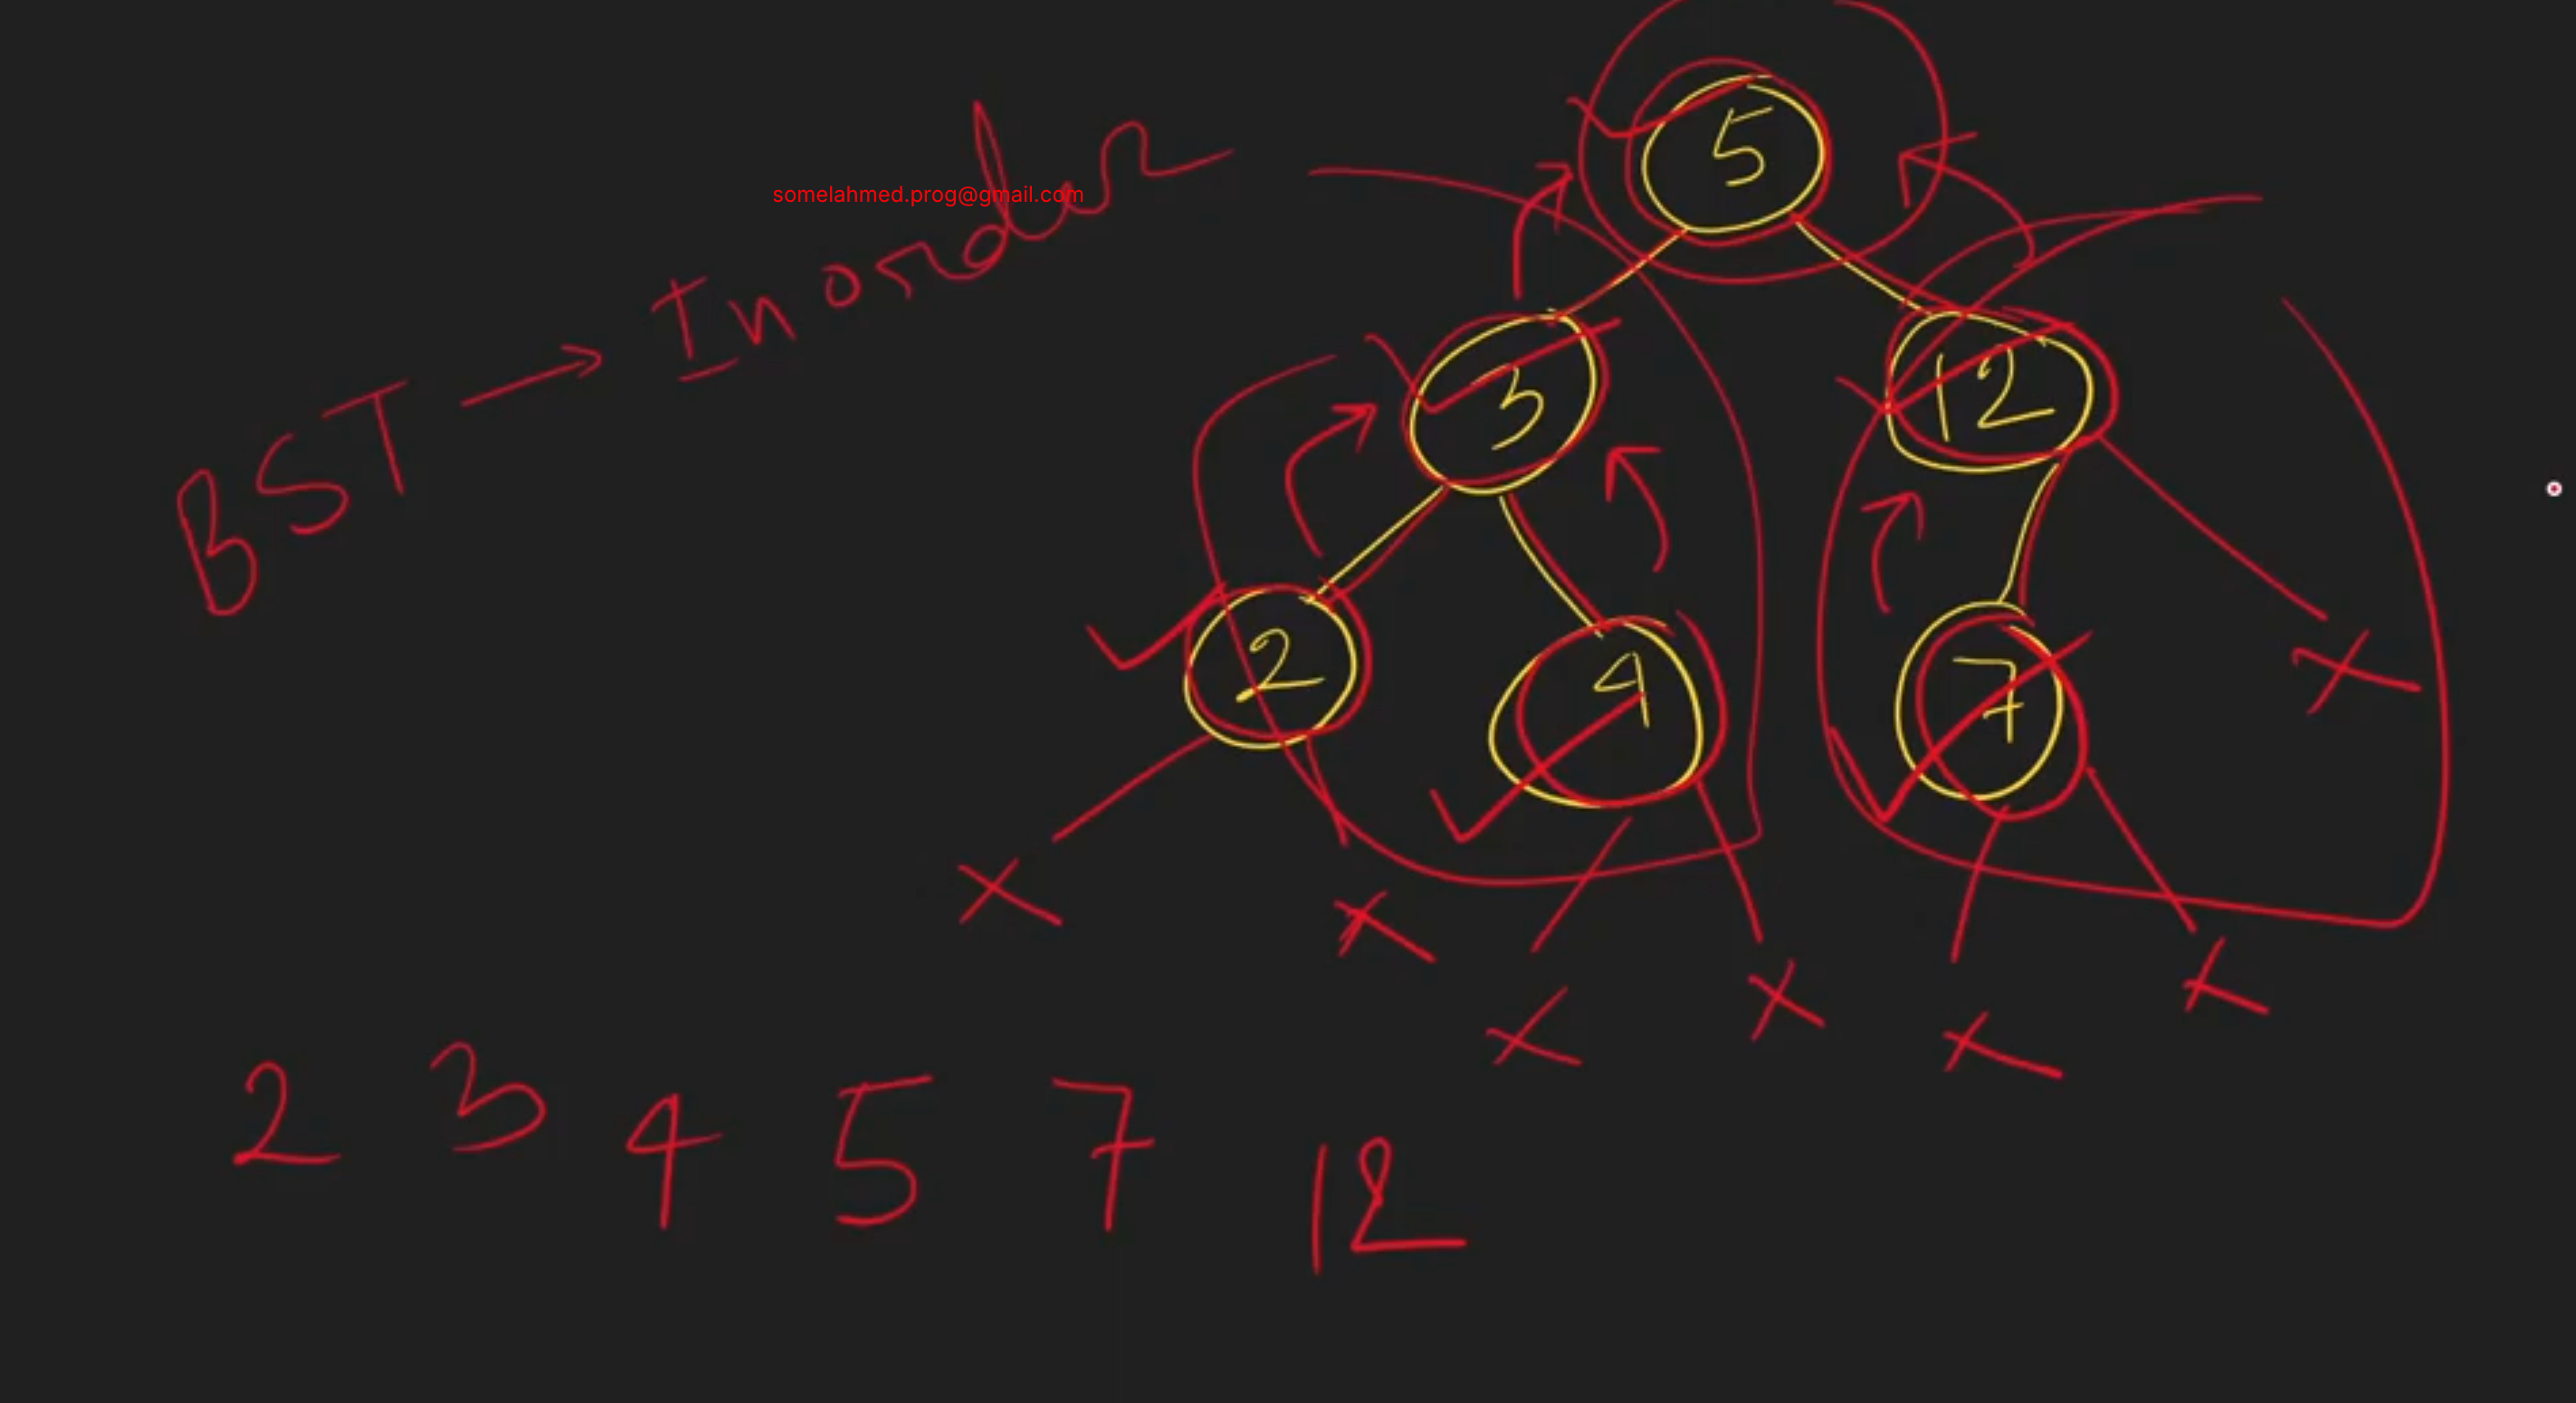 BST → Inorder
somelahmed.prog@gmail.com
5
3
12
2
4
7
2 3 4 5 7 12